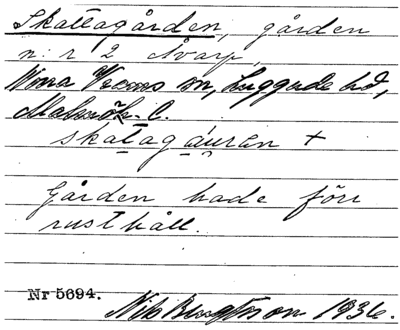 Skattagården, gården
n:r 2 Åvarp,
Norra Vrams sn, Luggude hd,
Malmöh. l.
skatagáurån +
Gården hade förr
rusthåll.
Nr 5694.
Nils Bengtsson 1936.